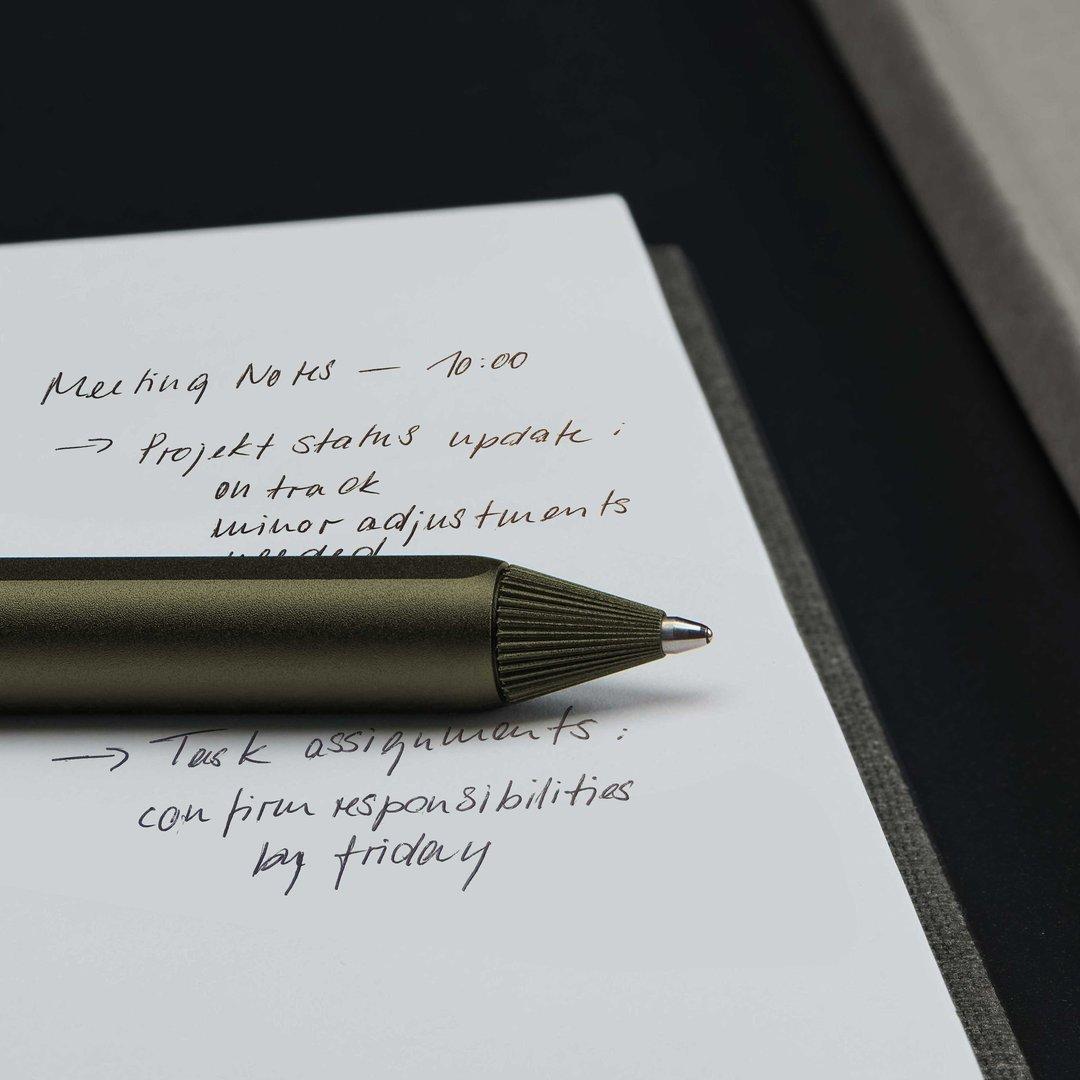 Meeting Notes — 10:00
→ Projekt status update :
on track
minor adjustments
needed
→ Task assignments :
confirm responsibilities
by friday